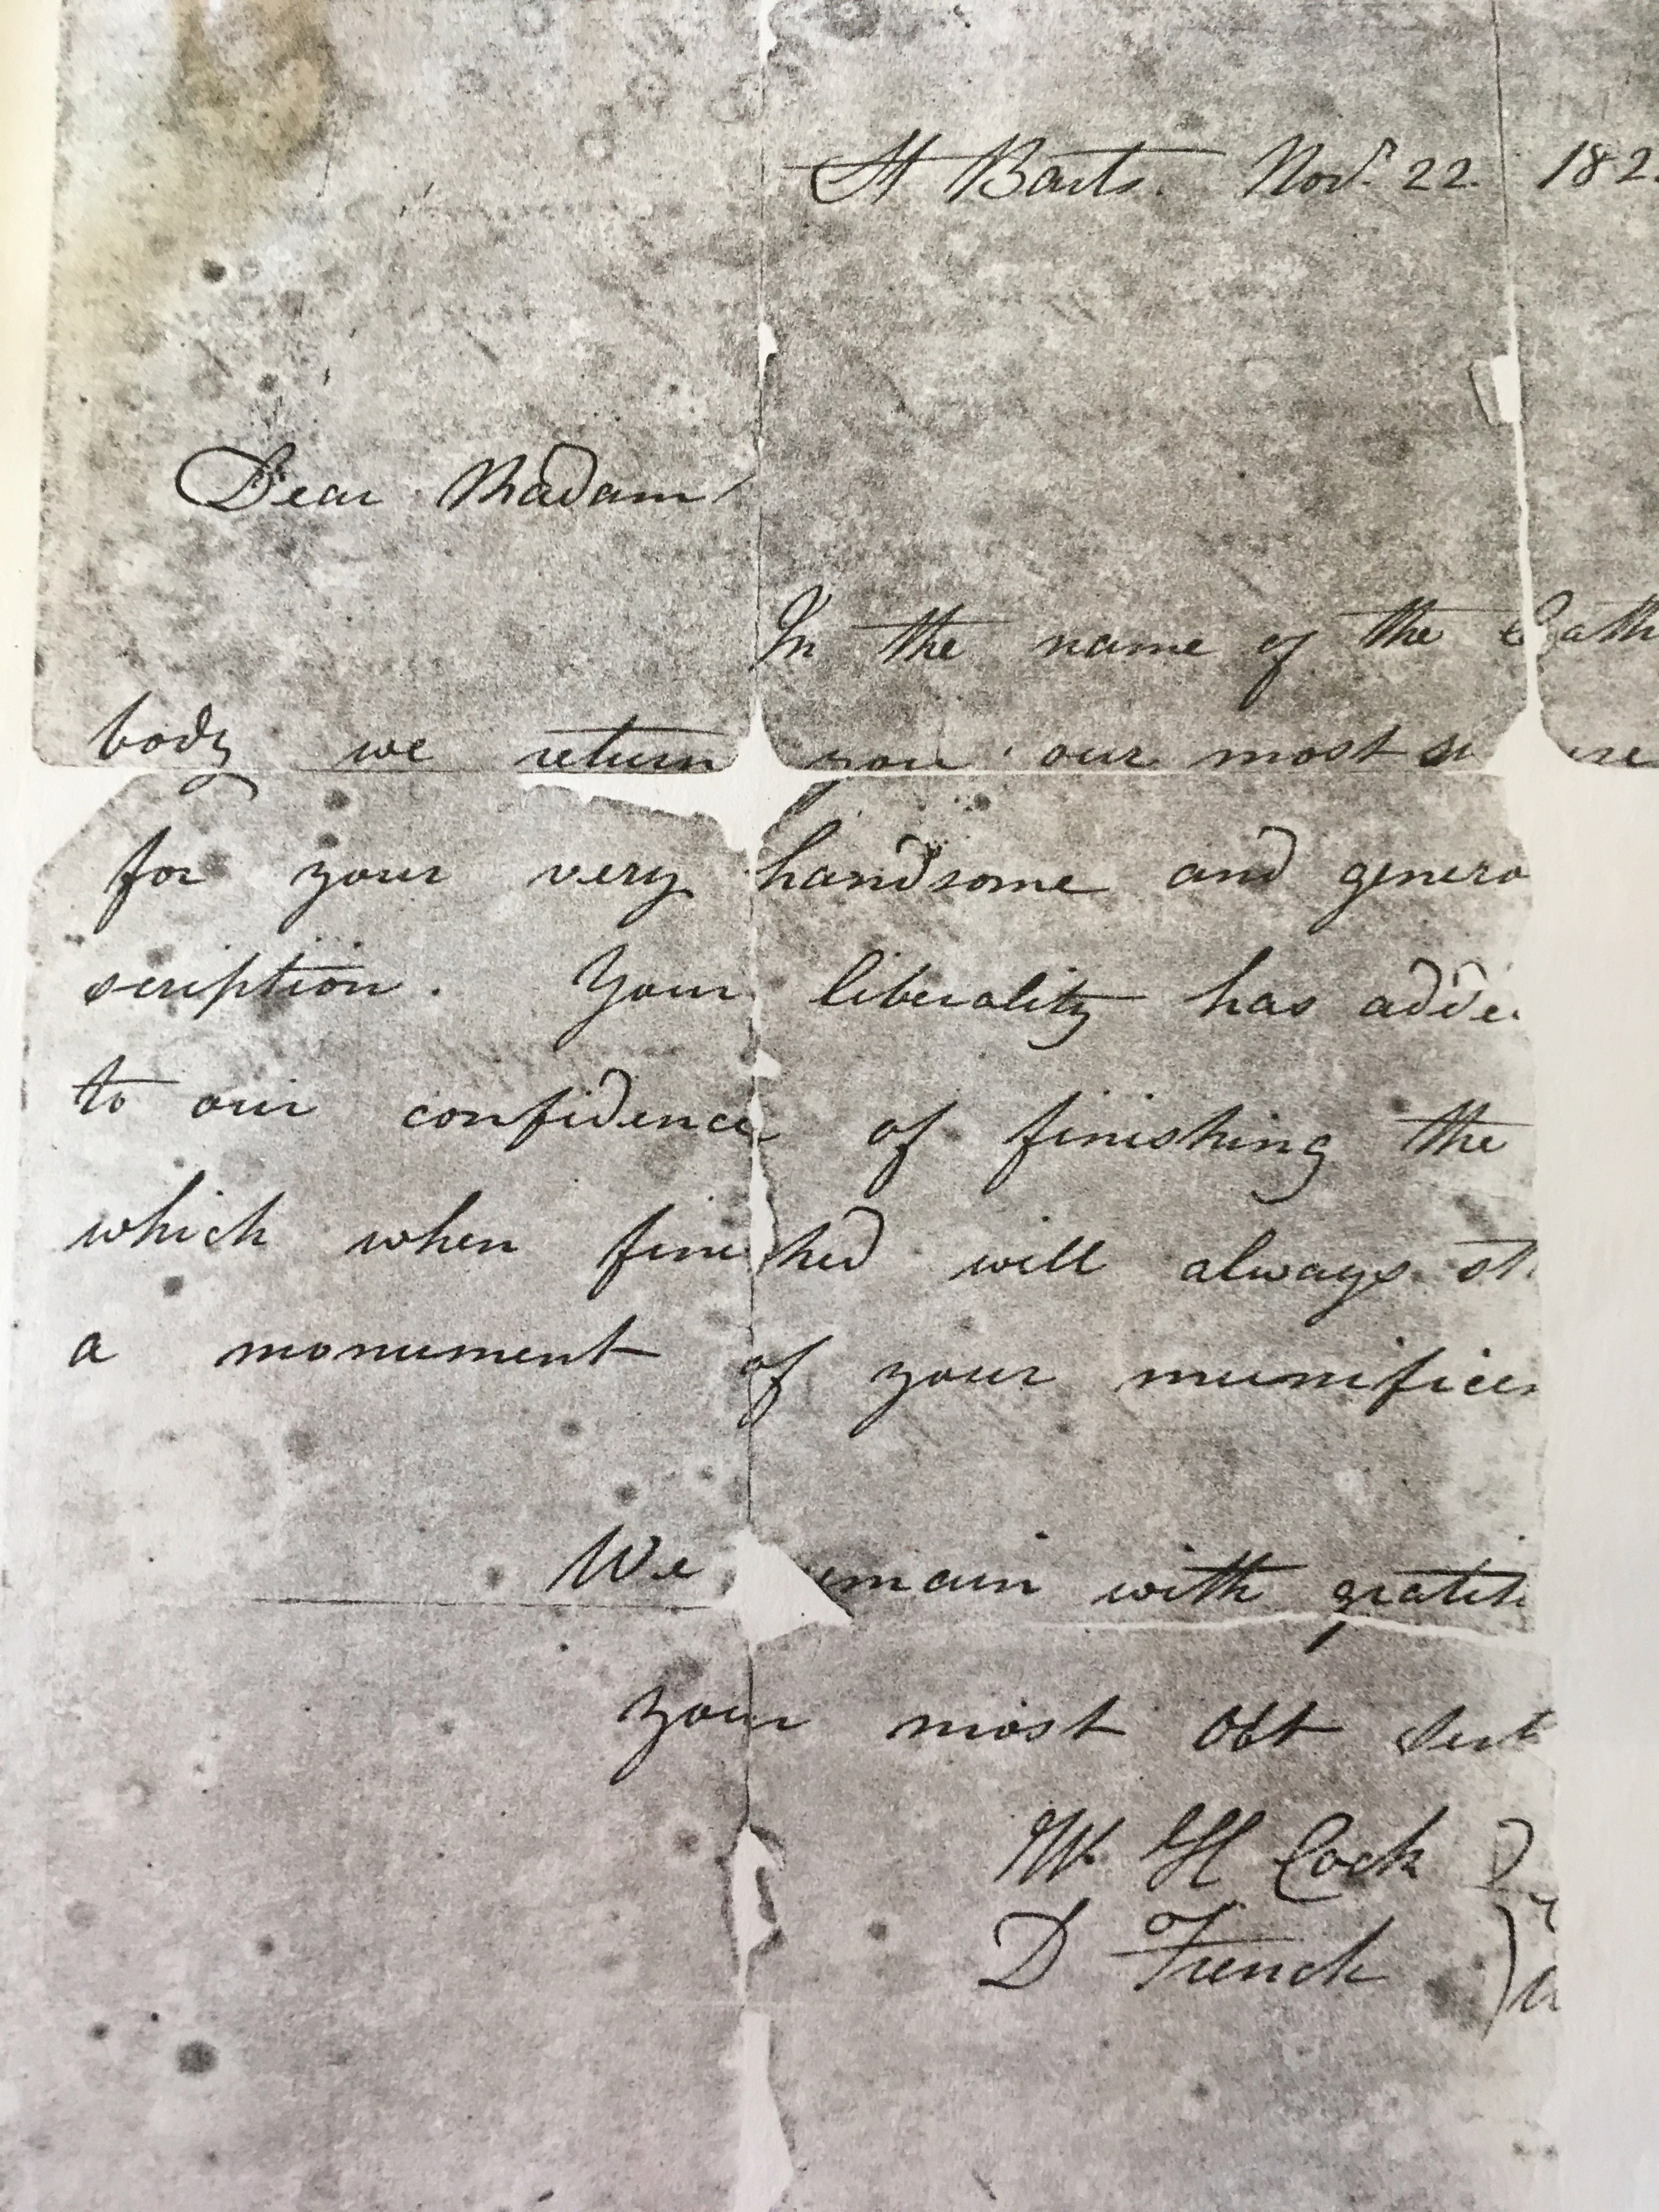 St Barts. Novr 22. 182
Dear Madam
In the name of the Cath
body we return you our most
for your very handsome and genero
scription. Your liberality has adde
to our confidence of finishing the
which when finished will always st
a monument of your munificen
We emain with gratit
your most Obt Servt
W. H Cock
D French